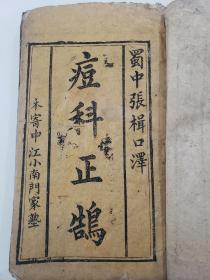 蜀中張楫口澤
痘科正鵠
本寄中江小南門家塾